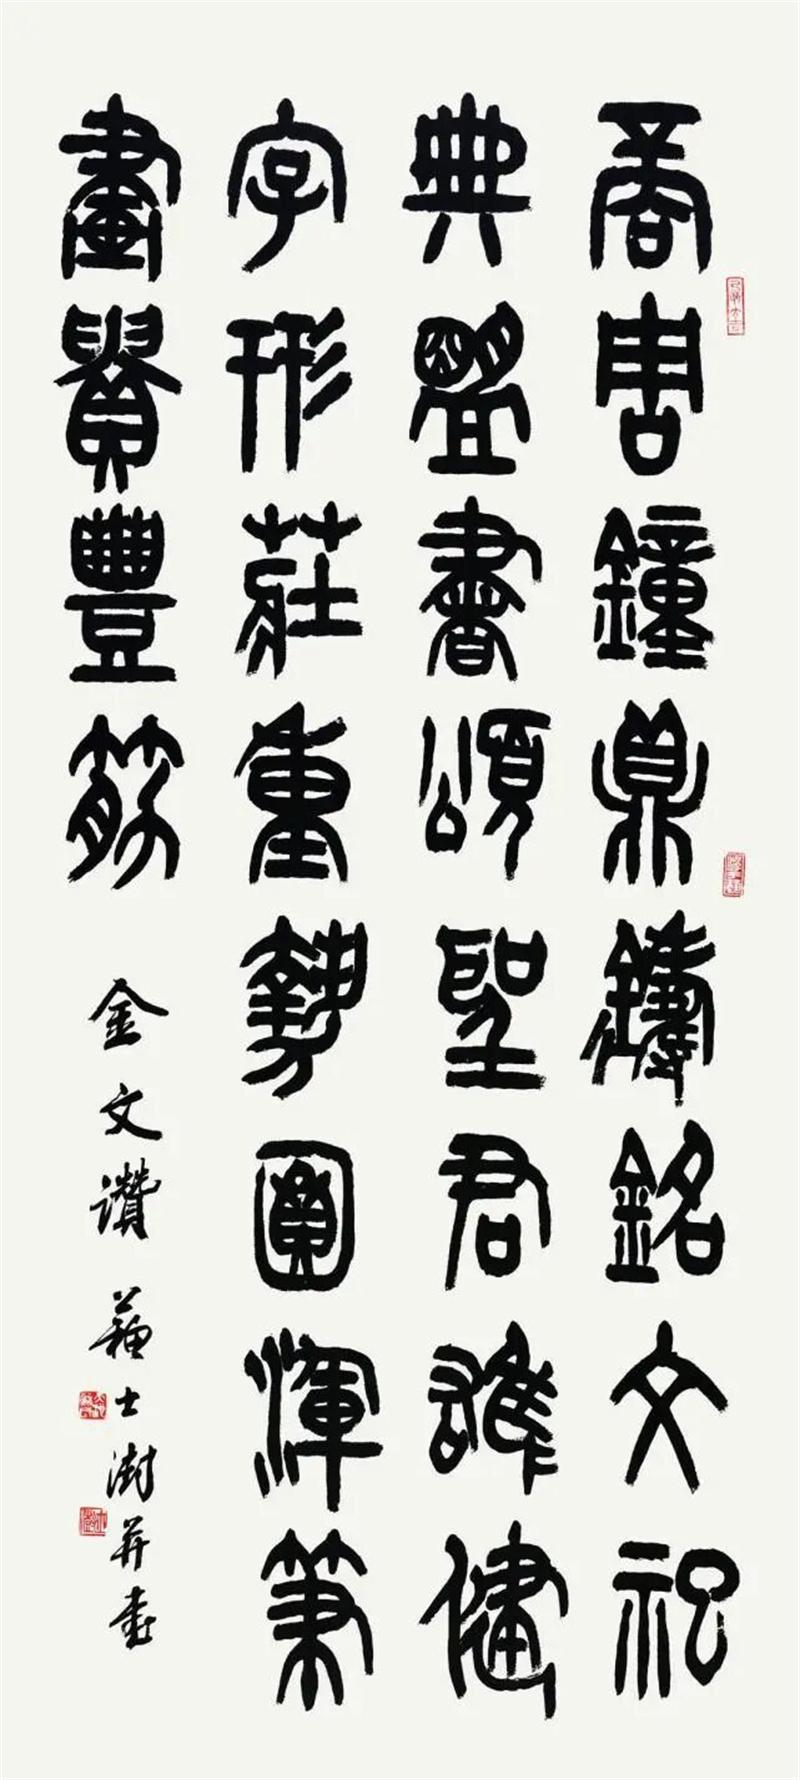 商周鐘鼎鑄銘文祀
典盟書頌聖君雄健
字形莊重勢圓渾筆
畫貴豐筋
金文讚 蘇士澍并書